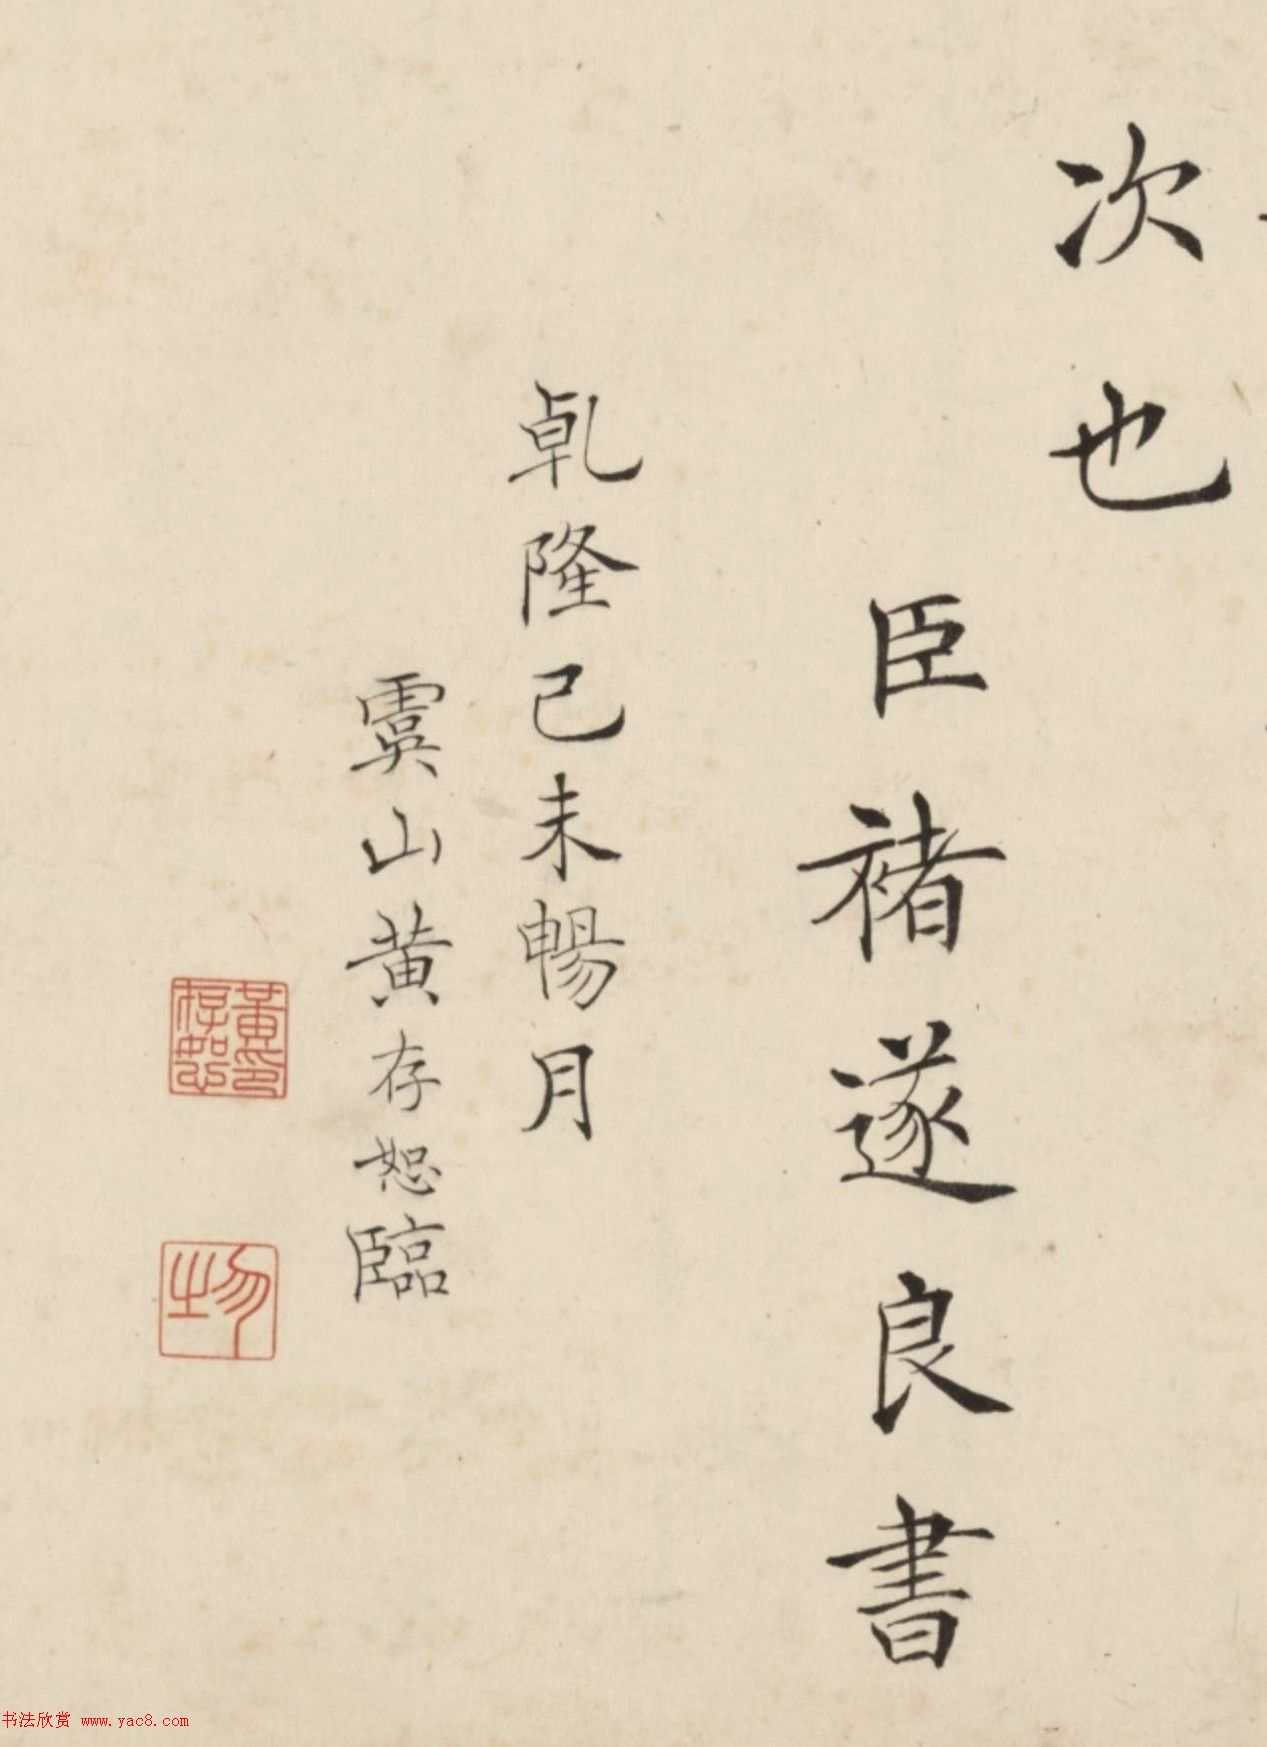 次也
臣褚遂良書
乹隆己未暢月
虞山黄存恕臨
黃印存恕
书法欣赏 www.yac8.com